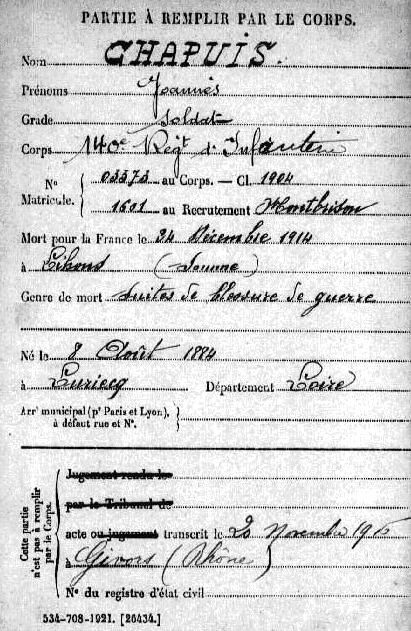 PARTIE À REMPLIR PAR LE CORPS.
Nom CHAPUIS.
Prénoms Joannès
Grade Soldat
Corps 140e Régt d'Infanterie
No 03373 au Corps. — Cl. 1904
Matricule. 1601 au Recrutement Montbrison
Mort pour la France le 24 Décembre 1914
à Lihons (Somme)
Genre de mort suites de blessure de guerre
Né le 8 Août 1884
à Luriecq Département Loire
Arrt municipal (pr Paris et Lyon),
à défaut rue et No.
Cette partie
n'est pas à remplir
par le Corps.
Jugement rendu le
par le Tribunal de
acte ou jugement transcrit le 20 Novembre
à Givors (Rhône)
No du registre d'état civil
534-708-1921. [26434.]